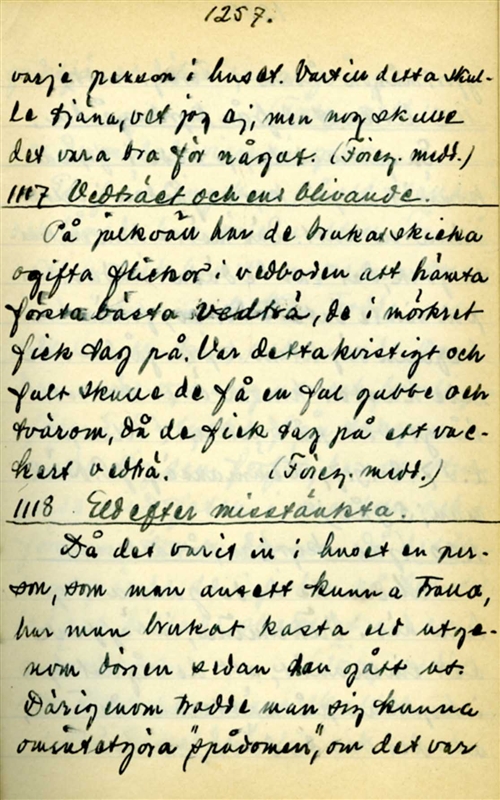 1257.
varje person i huset. Vartill detta skul-
le tjäna, vet jag ej, men nog skulle
det vara bra för något. (Föreg. medd.)
1117 Vedträet och ens blivande.
På julkväll har de brukat skicka
ogifta flickor i vedboden att hämta
första bästa vedträ, de i mörkret
fick tag på. Var detta kvistigt och
fult skulle de få en ful gubbe och
tvärom, då de fick tag på ett vac-
kert vedträ. (Föreg. medd.)
1118 Eld efter misstänkta.
Då det varit in i huset en per-
son, som man ansett kunna trolla,
har man brukat kasta eld utge-
nom dörren sedan den gått ut.
Därigenom trodde man sig kunna
omintetgöra "spådomen", om det var